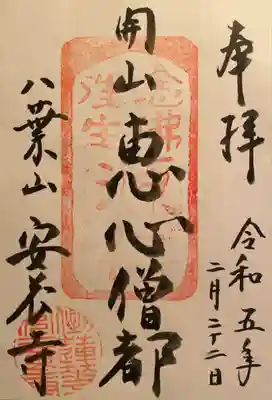 奉拝
令和五年
二月二十二日
開山恵心僧都
八葉山安養寺